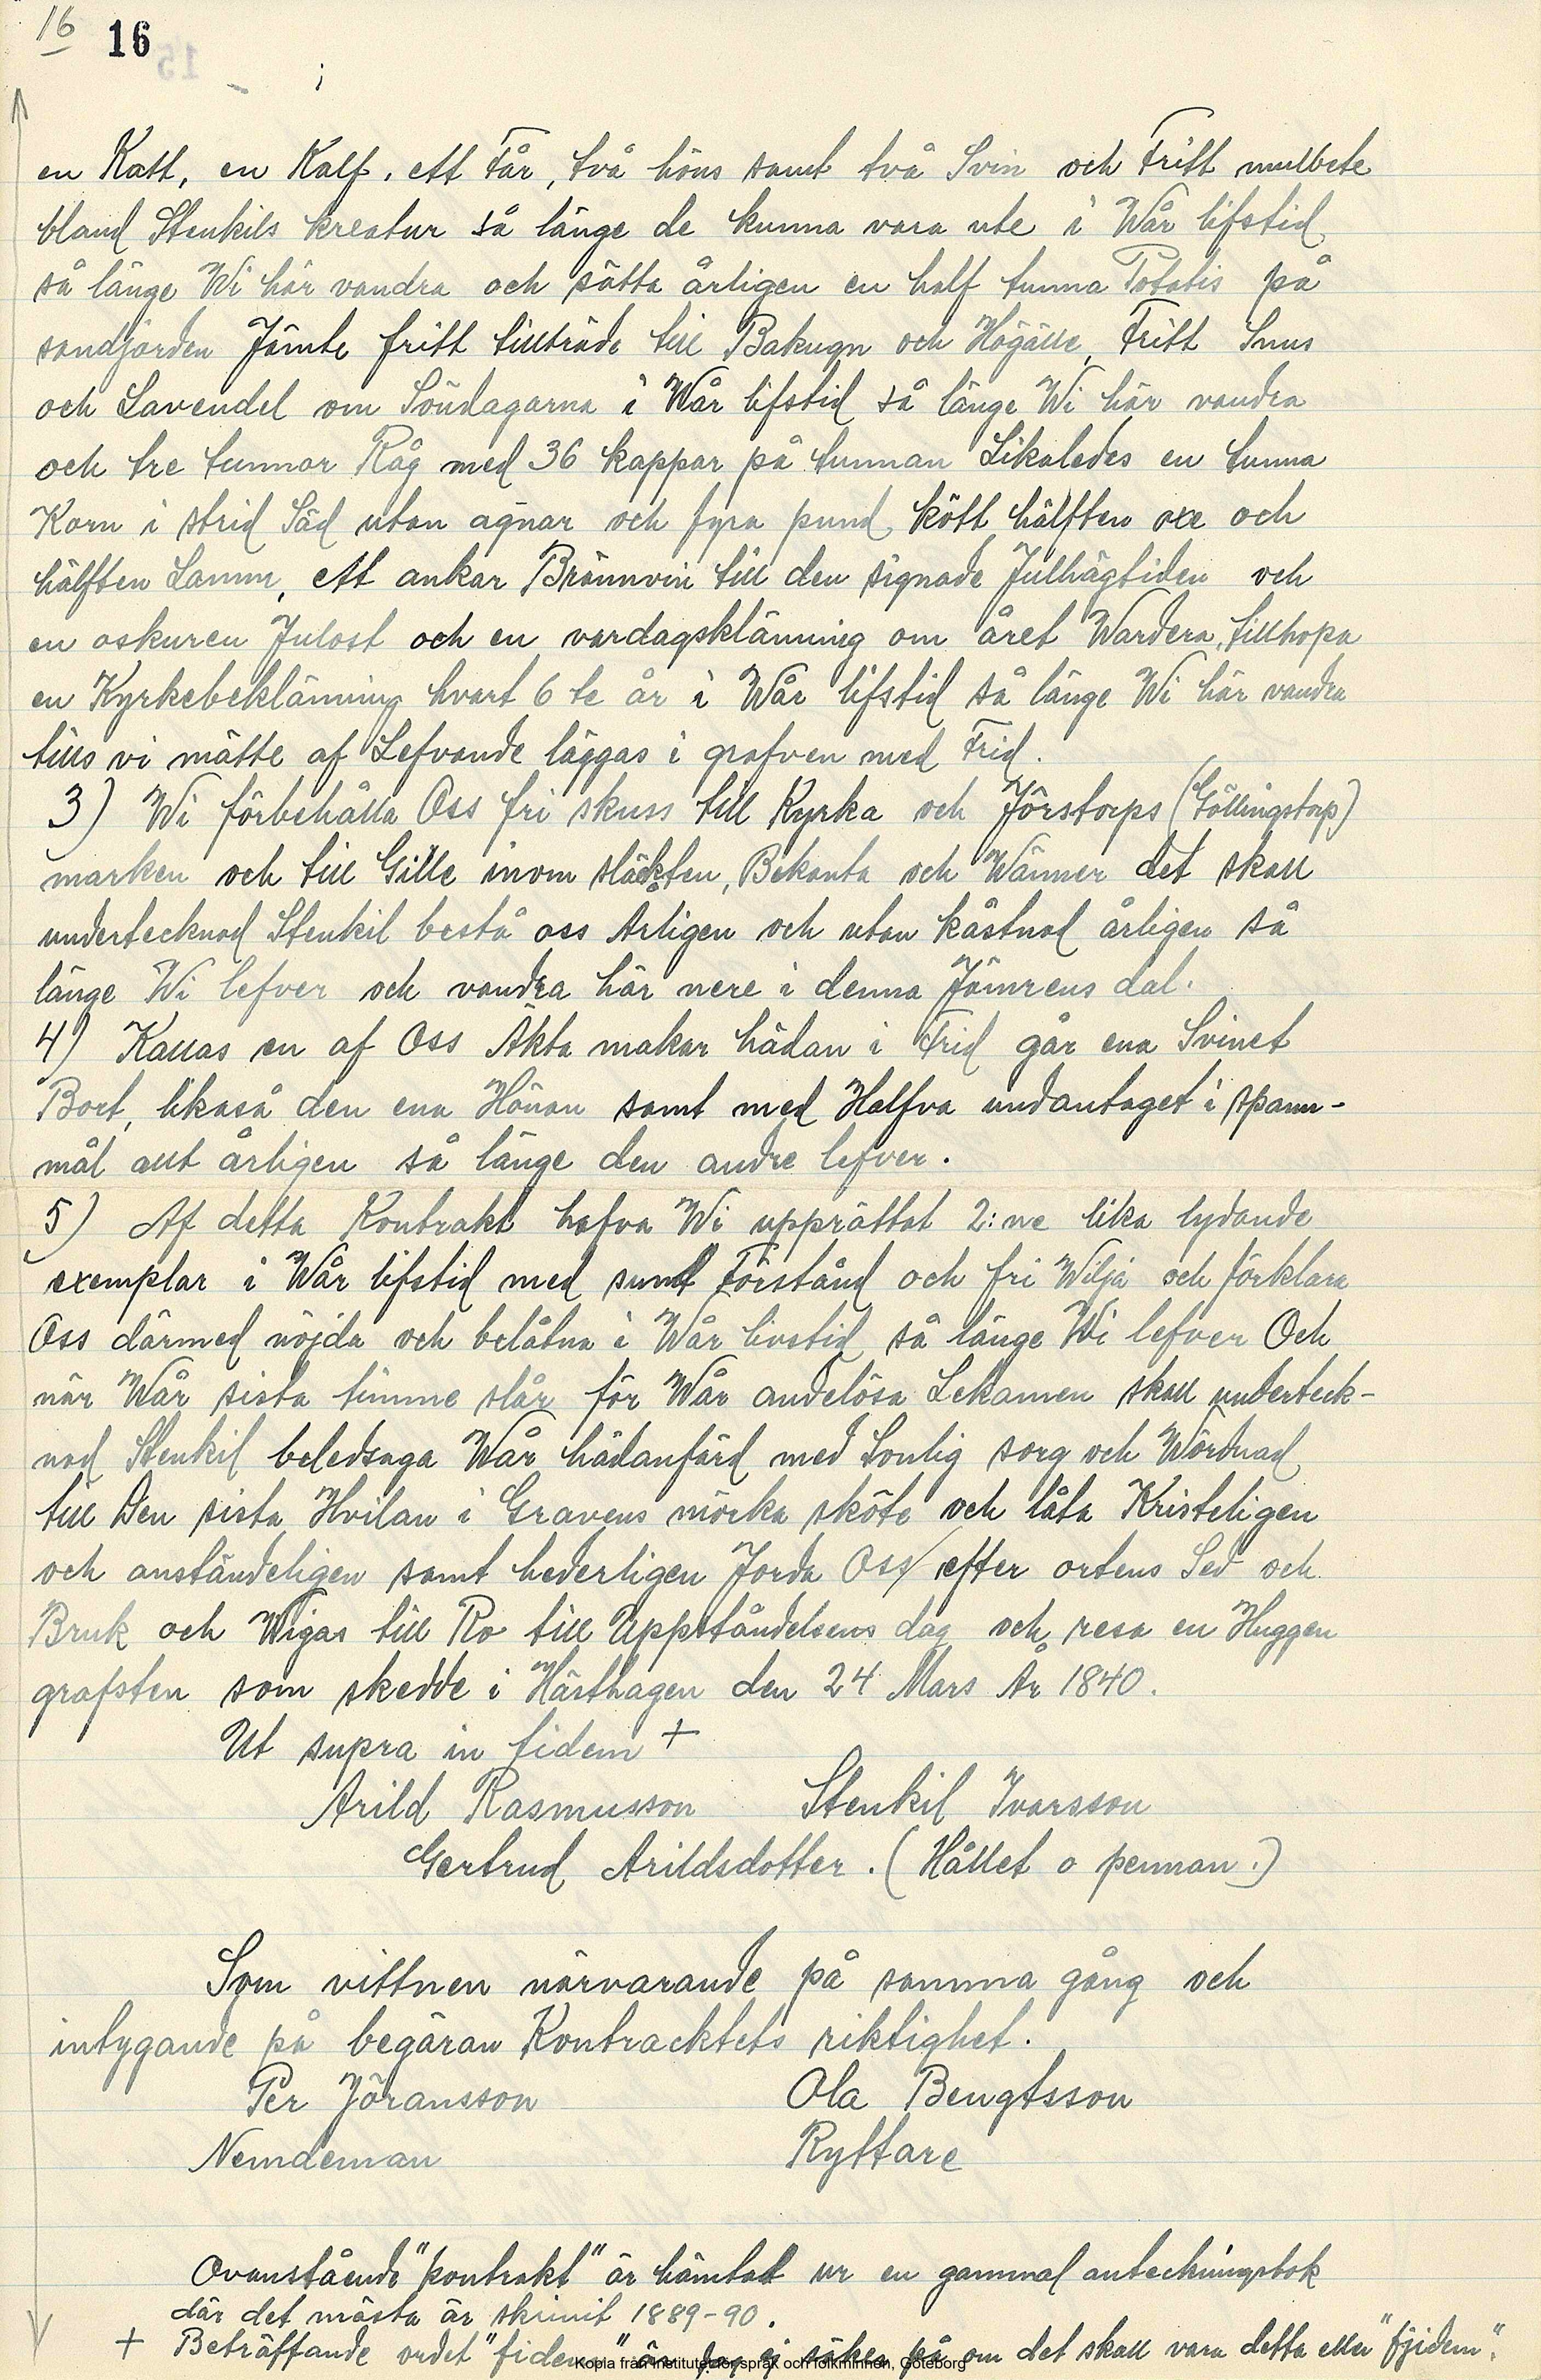 16 16
en Katt, en Kalf, ett Får, två höns samt två Svin och Fritt mulbete
bland Stenkils kreatur så länge de kunna vara ute i Wår lifstid
så länge Wi här vandra och sätta årligen en half tunna Potatis på
sandjorden Jämte fritt tillträde till Bakugn och Högälle, Fritt Snus
och Lavendel om Söndagarna i Wår lifstid så länge Wi här vandra
och tre tunnor Råg med 36 kappar på tunnan Likaledes en tunna
Korn i strid Säd utan agnar och fyra pund kött hälften oxe och
hälften Lamm, ett ankar Brännvin till den signade Julhägtiden och
en oskuren Julost och en vardagsklänning om året Wardera, tillhopa
en Kyrkebeklänning hvart 6 te år i Wår lifstid så länge Wi här vandra
tills vi mätte af Lefvande läggas i grafven med Frid.
3) Wi förbehålla Oss fri skuss till Kyrka och Jörstorps (Töllingstorp)
marken och till Gille inom släckten, Bekanta och Wänner det skall
undertecknad Stenkil bestå oss Årligen och utan kåstnad årligen så
länge Wi lefver och vandra här nere i denna Jämrens dal.
4) Kallas en af Oss Äkta makar hädan i Frid går ena Svinet
Bort, likaså den ena Hönan samt med Halfva undantaget i spann-
mål allt årligen så länge den andre lefver.
5) Af detta Kontrakt hafva Wi upprättat 2:ne lika lydande
exemplar i Wår lifstid med sunt Förstånd och fri Wilja och förklara
Oss därmed nöjda och belåtna i Wår livstid så länge Wi lefver Och
när Wår sista timme slår för Wår andelösa Lekamen skall underteck-
nad Stenkil beledsaga Wår hädanfärd med Sonlig sorg och Wördnad
till Den sista Hvilan i Gravens mörka sköte och låta Kristeligen
och anständeligen samt hederligen Jorda Oss efter ortens Sed och
Bruk och Wigas till Ro till Uppståndelsens dag och resa en Huggen
grafsten som skedde i Härthagen den 24 Mars År 1840.
Ut supra in fidem +
Arild Rasmusson Stenkil Ivarsson
Gertrud Arildsdotter. (Hållet o pennan.)
Som vittnen närvarande på samma gång och
intygande på begäran Kontracktets riktighet.
Per Jöransson Ola Bengtsson
Nemdeman Ryttare
Ovanstående "kontrakt" är hämtat ur en gammal anteckningsbok
där det mästa är skrivit 1889-90.
+ Beträffande ordet "fidem" är jag ej säker på om det skall vara detta eller "fjidem".
Kopia från Institutet för språk och folkminnen, Göteborg